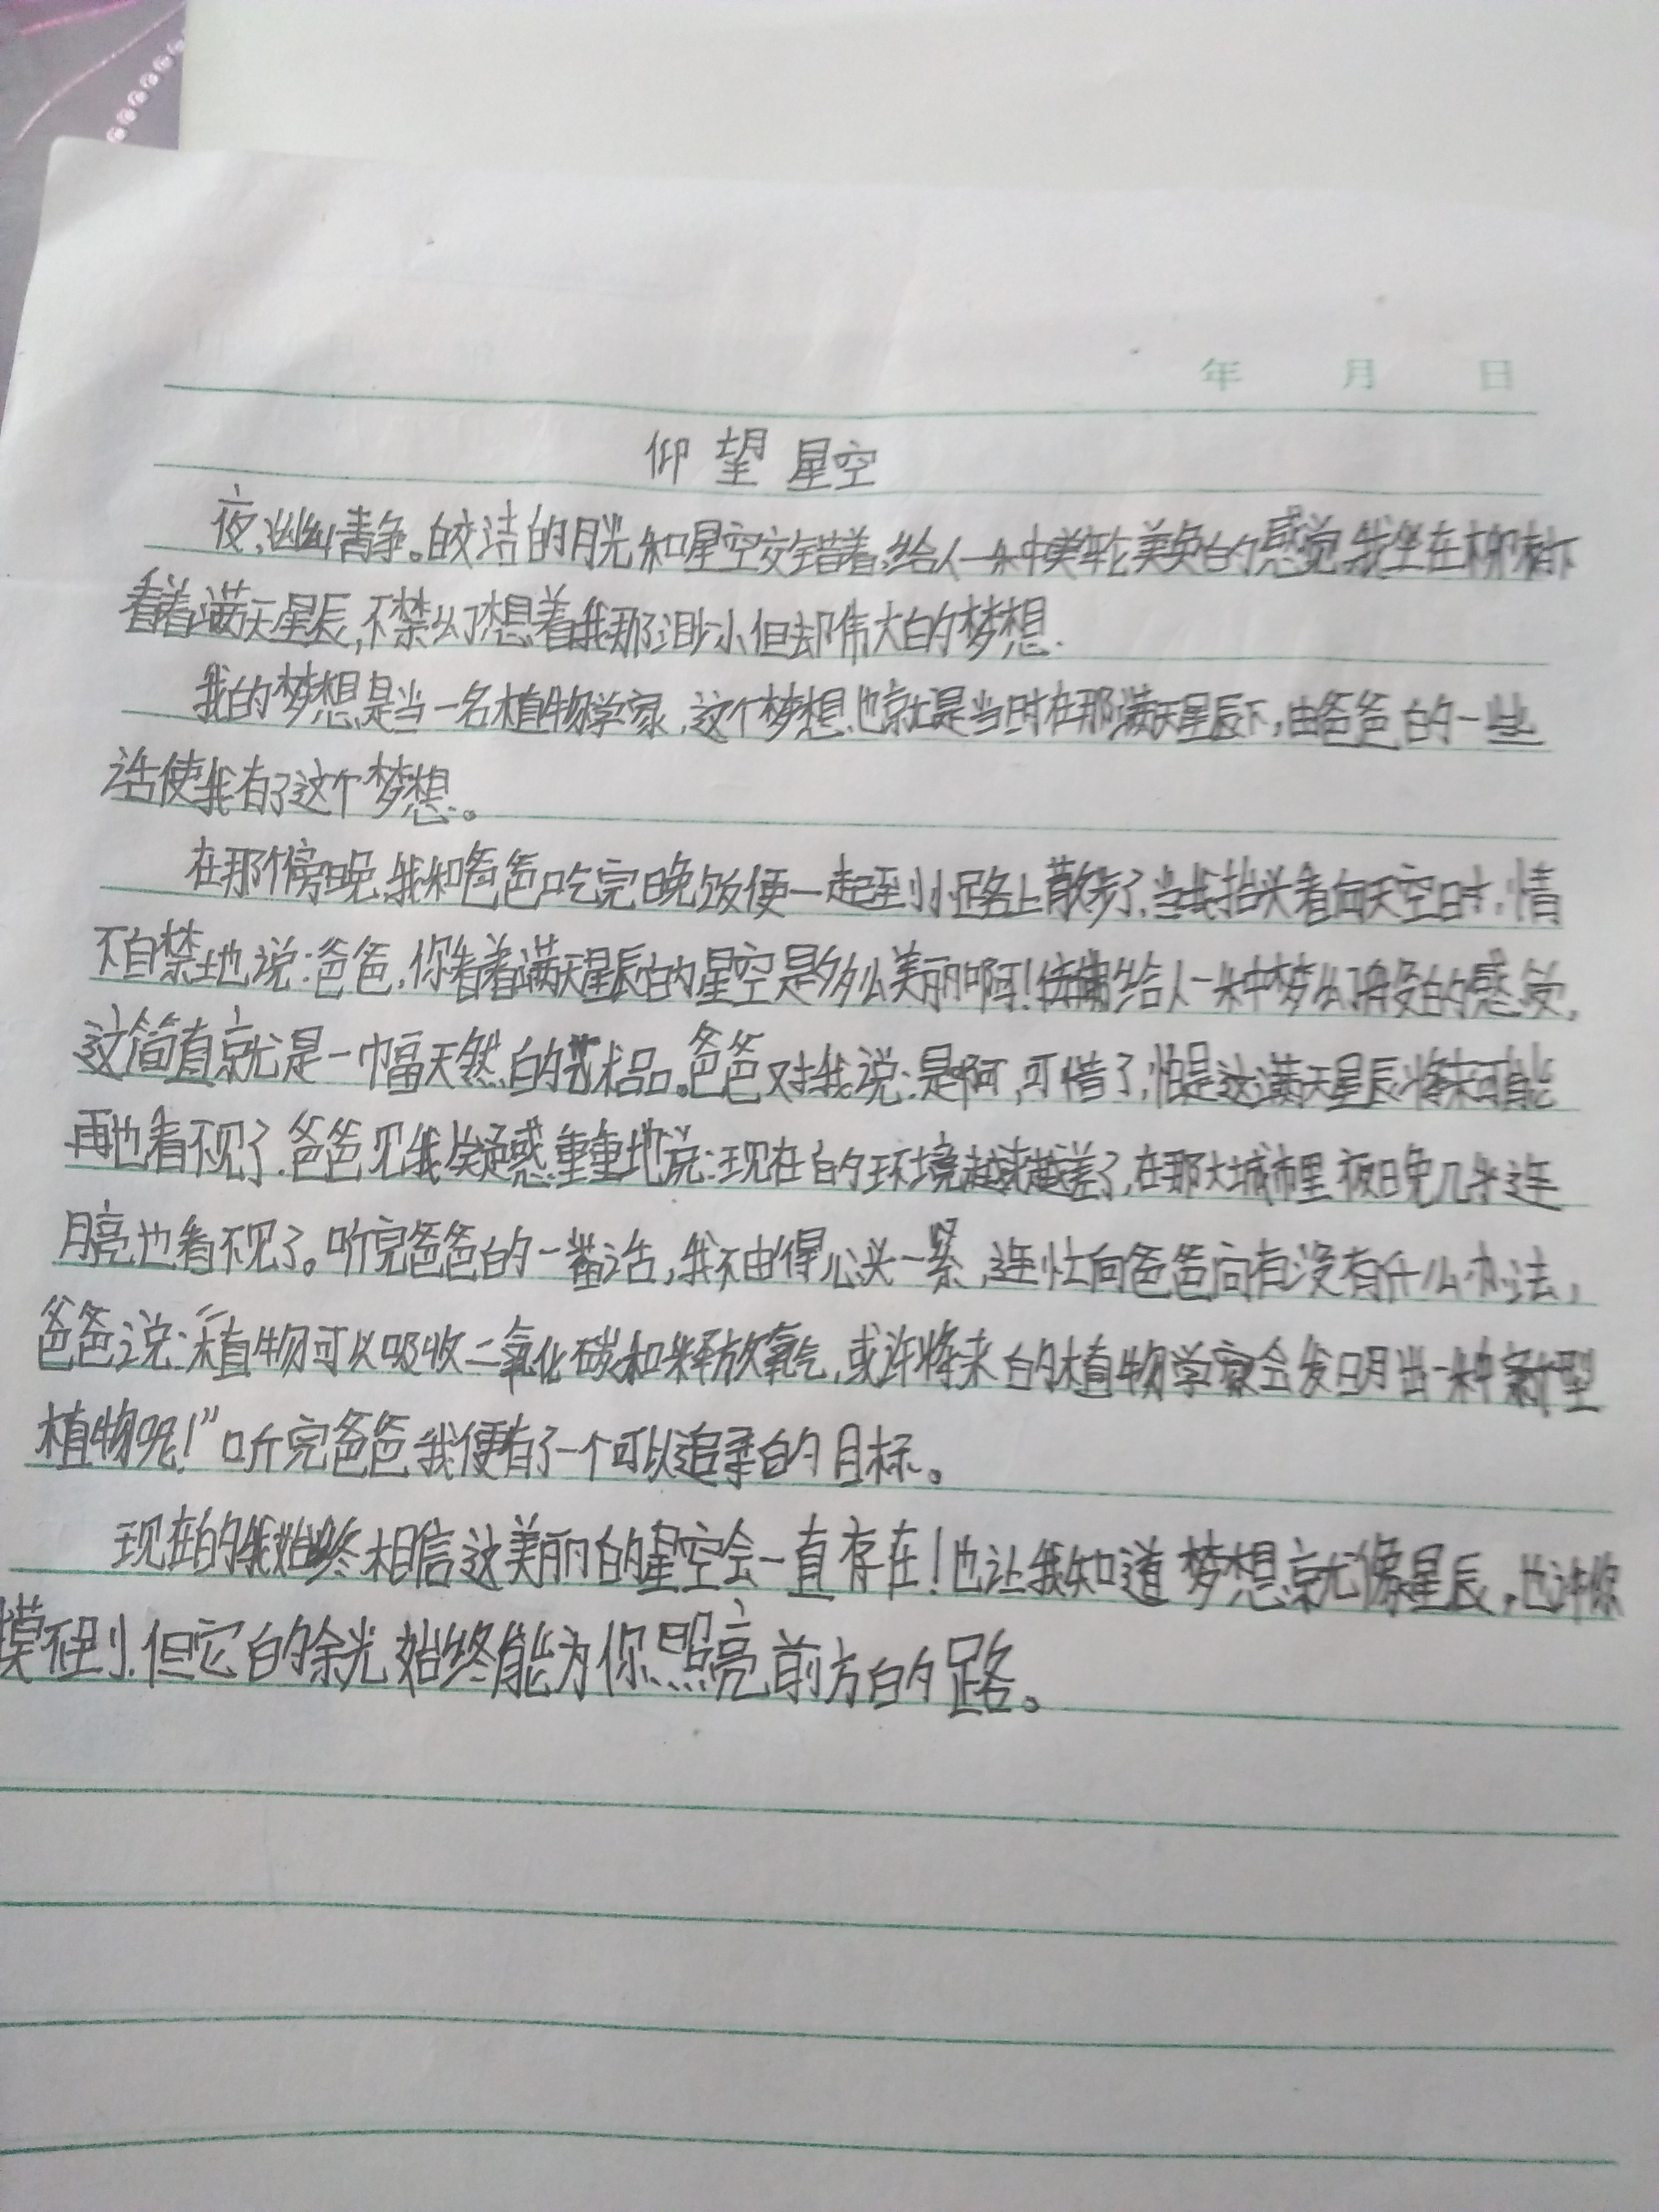 年 月 日
仰望星空
夜,幽幽静静。皎洁的月光和星空交错着,给人一种美轮美奂的感觉,我坐在柳树下
看着满天星辰,不禁幻想着我那渺小但却伟大的梦想.
我的梦想是当一名植物学家,这个梦想,也就是当时在那满天星辰下,由爸爸的一些
话使我有了这个梦想。
在那个傍晚,我和爸爸吃完晚饭便一起到小路上散步了,当我抬头看向天空时,情
不自禁地说:爸爸,你看着满天星辰的星空是多么美丽啊!给人一种梦幻般的感受,
这简直就是一幅天然的艺术品。爸爸对我说:是啊,可惜了,怕是这满天星辰将来可能
再也看不见了.爸爸见我疑惑重重地说:现在的环境越来越差了,在那大城市里夜晚几乎连
月亮也看不见了。听完爸爸的一番话,我不由得心头一紧,连忙向爸爸问有没有什么办法,
爸爸说:“植物可以吸收二氧化碳和释放氧气,或许将来的植物学家会发明出一种新型
植物呢!”听完爸爸我便有了一个可以追求的目标。
现在的我始终相信这美丽的星空会一直存在!也让我知道梦想就像星辰,也许你
摸不到,但它的余光始终能为你照亮前方的路。